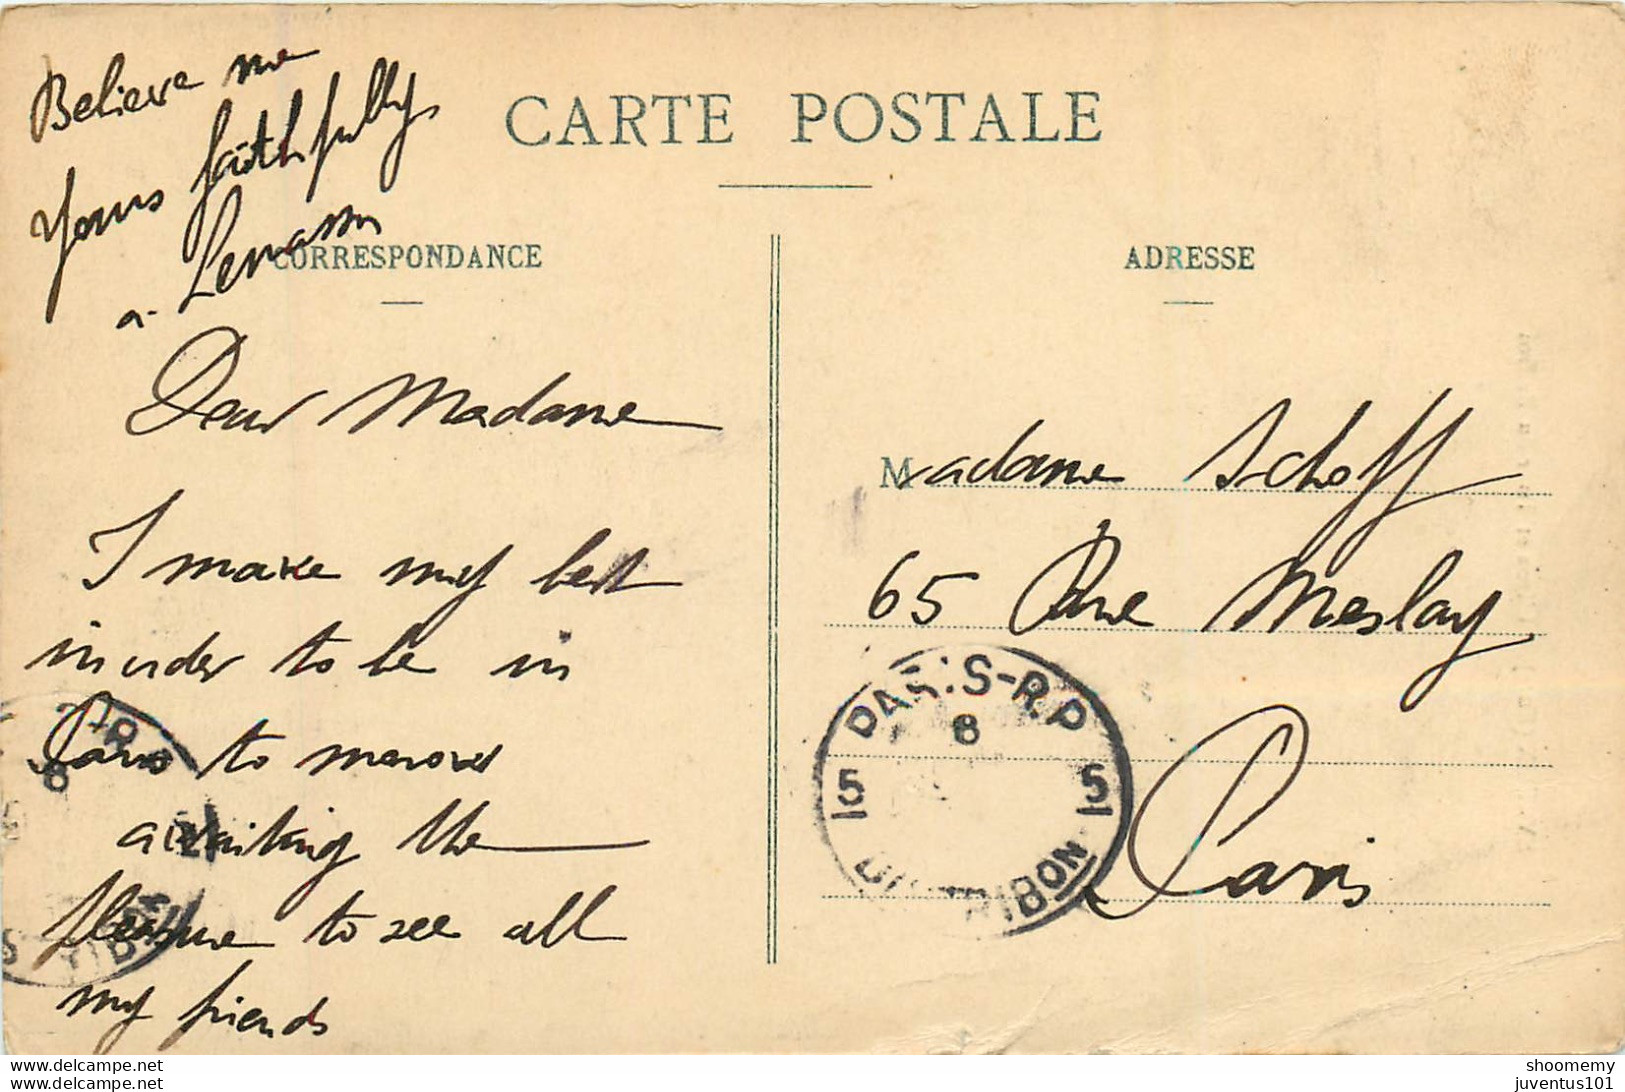 CARTE POSTALE
CORRESPONDANCE
ADRESSE
Dear Madame
I make my best
in order to be in
Paris to morow
awaiting the
pleasure to see all
my friends
Believe me
Yours faithfully
a. Lemasson
Madame Schoff
65 Rue Meslay
Paris
PARIS-R.P
6
5 5
DISTRIBON
shoomemy
juventus101